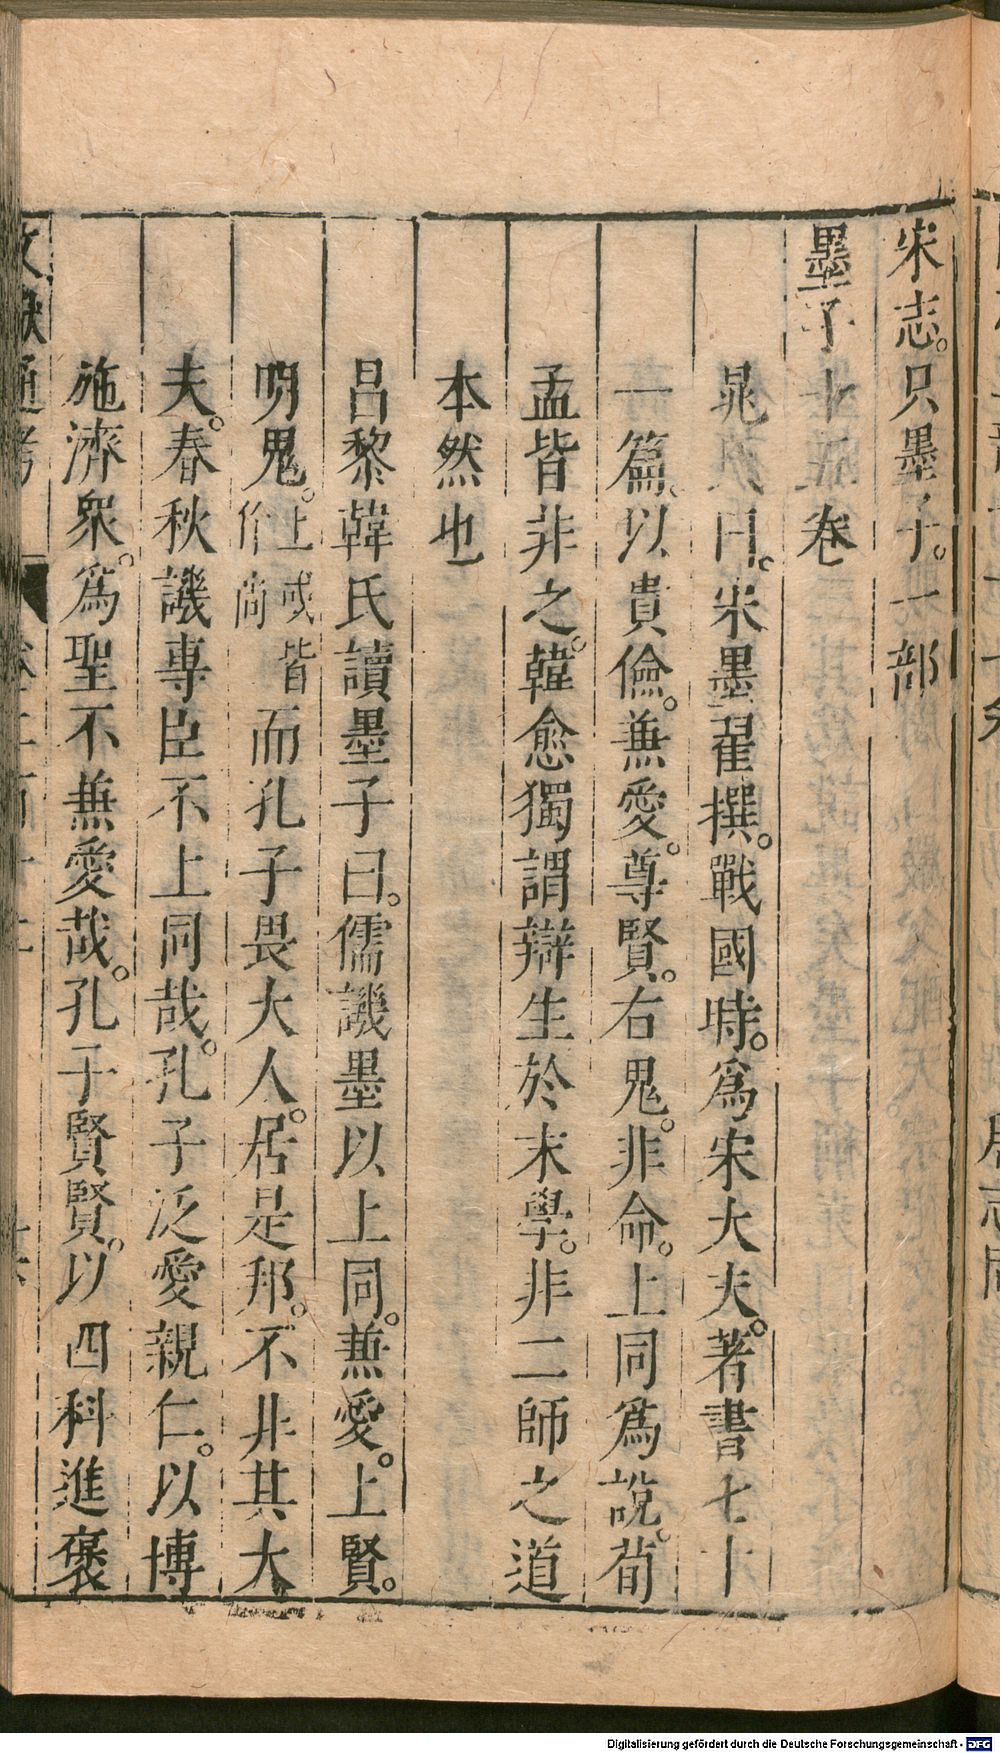 宋志。只墨子。一部
墨子十五卷
晁氏曰。宋墨翟撰。戰國時。爲宋大夫。著書七十
一篇。以貴儉。兼愛。尊賢。右鬼。非命。上同爲說。荀
孟皆非之。韓愈獨謂辯生於末學。非二師之道
本然也
昌黎韓氏讀墨子曰。儒譏墨以上同。兼愛。上賢。
明鬼。上或皆作尚而孔子畏大人。居是邦。不非其大
夫。春秋譏專臣不上同哉。孔子泛愛親仁。以博
施濟衆。爲聖不兼愛哉。孔子賢賢。以四科進褒
文獻通考
Digitalisierung gefördert durch die Deutsche Forschungsgemeinschaft - DFG